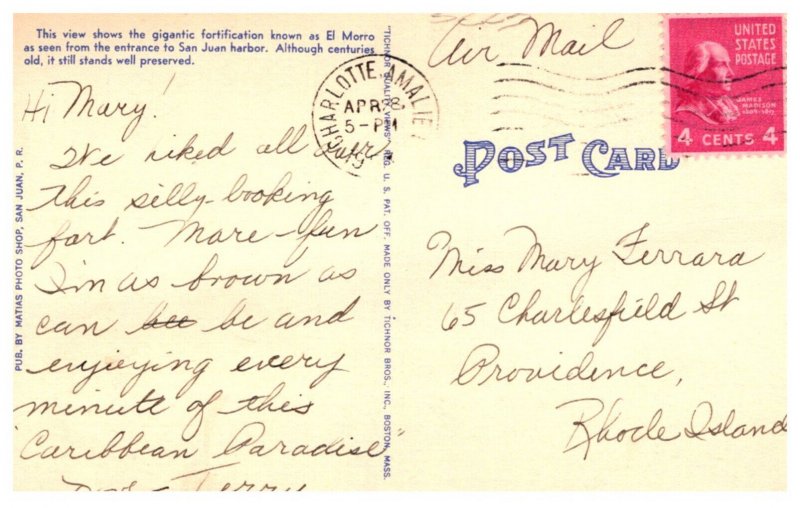 This view shows the gigantic fortification known as El Morro
as seen from the entrance to San Juan harbor. Although centuries
old, it still stands well preserved.
Hi Mary!
I've hiked all over
this silly-looking
fort. More-fun
I'm as brown as
can bee be and
enjoying every
minute of this
"Caribbean Paradise"
Terry
PUB. BY MATIAS PHOTO SHOP, SAN JUAN, P. R.
"TICHNOR QUALITY VIEWS" REG. U. S. PAT. OFF. MADE ONLY BY TICHNOR BROS., INC., BOSTON, MASS.
CHARLOTTE AMALIE
APR 8
5-PM
Air Mail
UNITED
STATES
POSTAGE
JAMES
MADISON
1809-1817
4 CENTS 4
POST CARD
Miss Mary Ferrara
65 Charlesfield St
Providence,
Rhode Island